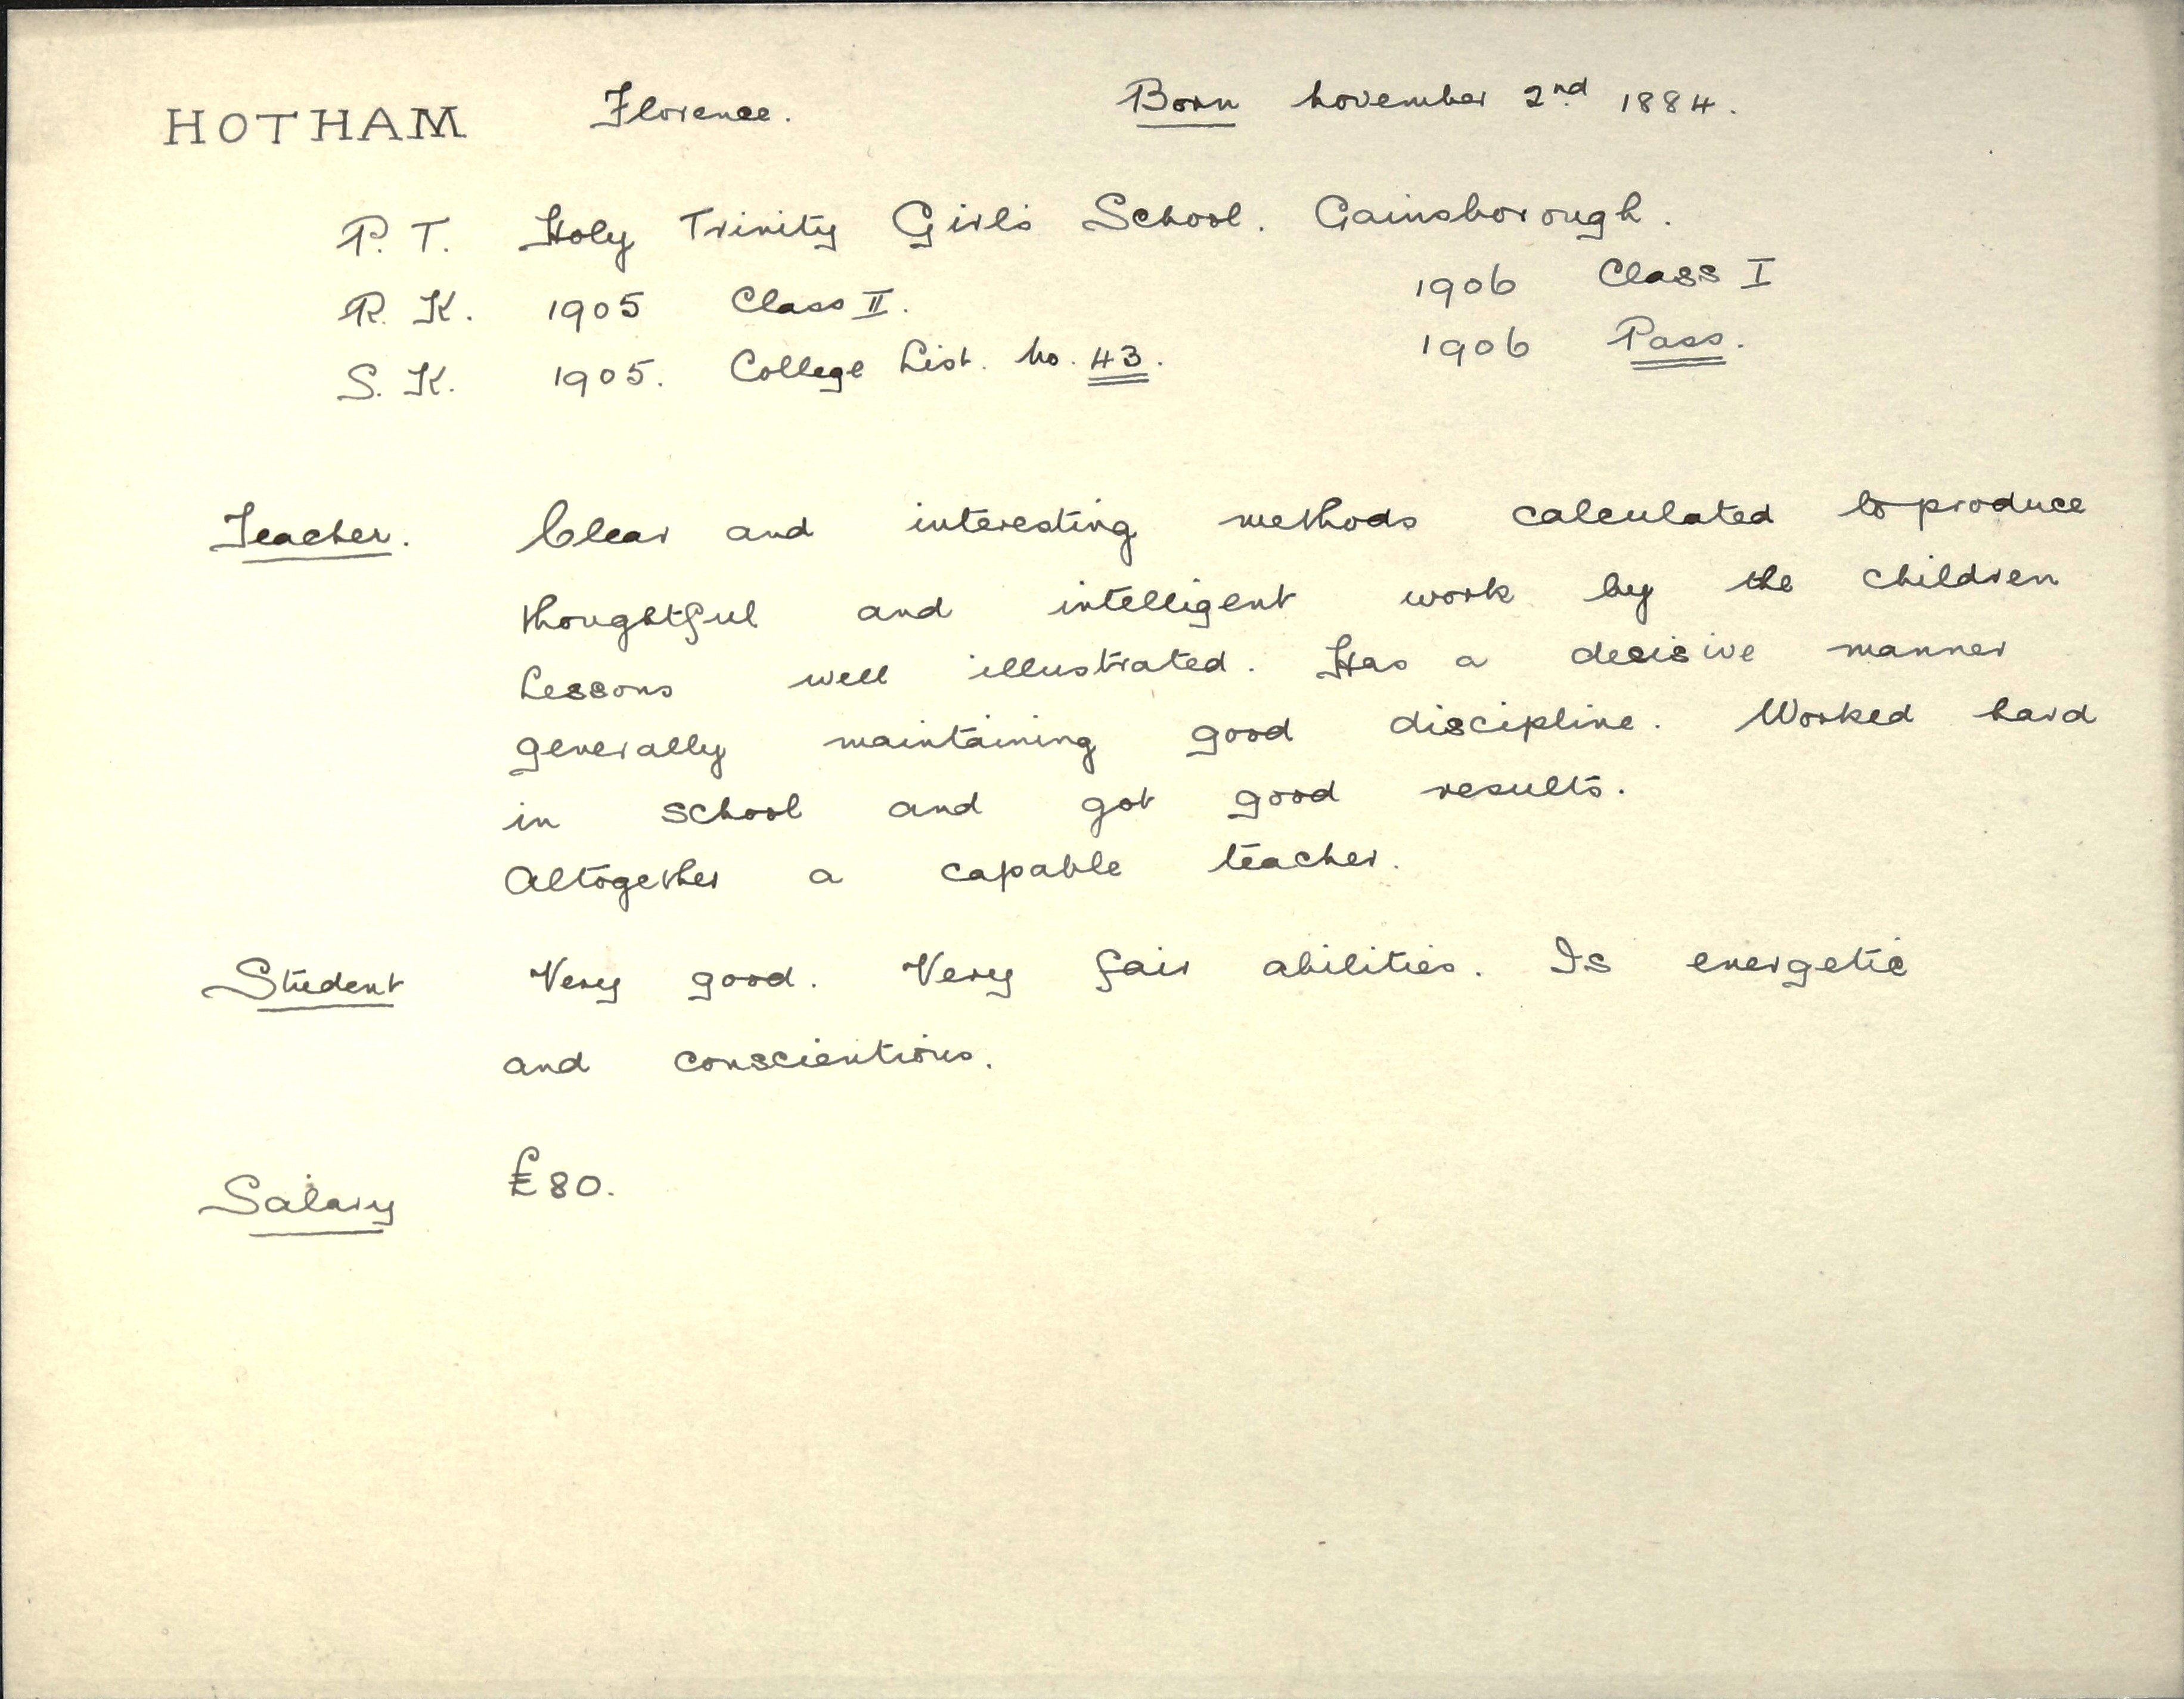 HOTHAM Florence. Born November 2nd 1884.
P. T. Holy Trinity Girls School. Gainsborough.
R. K. 1905 Class II. 1906 Class I
S. K. 1905. College List. No. 43. 1906 Pass.
Teacher. Clear and interesting methods calculated to produce
thoughtful and intelligent work by the children
Lessons well illustrated. Has a decisive manner
generally maintaining good discipline. Worked hard
in school and got good results.
Altogether a capable teacher.
Student Very good. Very fair abilities. Is energetic
and conscientious.
Salary £80.